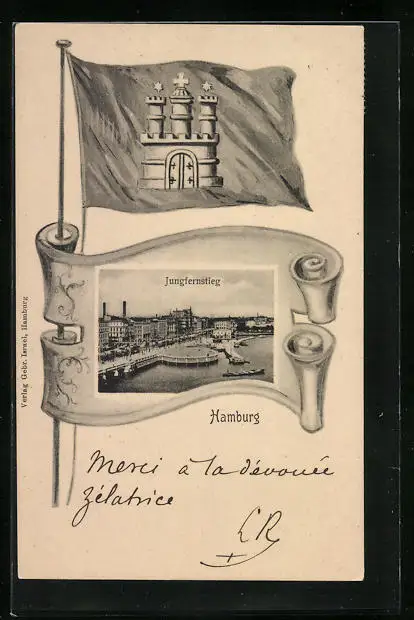 Jungfernstieg
Verlag Gebr. Israel, Hamburg
Hamburg
Merci à la dévouée
zélatrice
LR